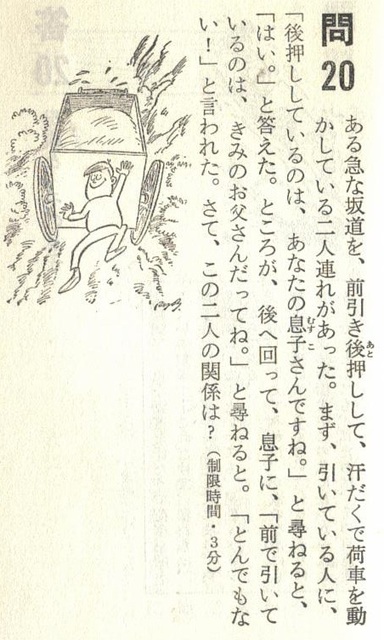 問20
ある急な坂道を、前引き後押しして、汗だくで荷車を動
かしている二人連れがあった。まず、引いている人に、
「後押ししているのは、あなたの息子さんですね。」と尋ねると、
「はい。」と答えた。ところが、後へ回って、息子に、「前で引いて
いるのは、きみのお父さんだってね。」と尋ねると。「とんでもな
い!」と言われた。さて、この二人の関係は?(制限時間・3分)